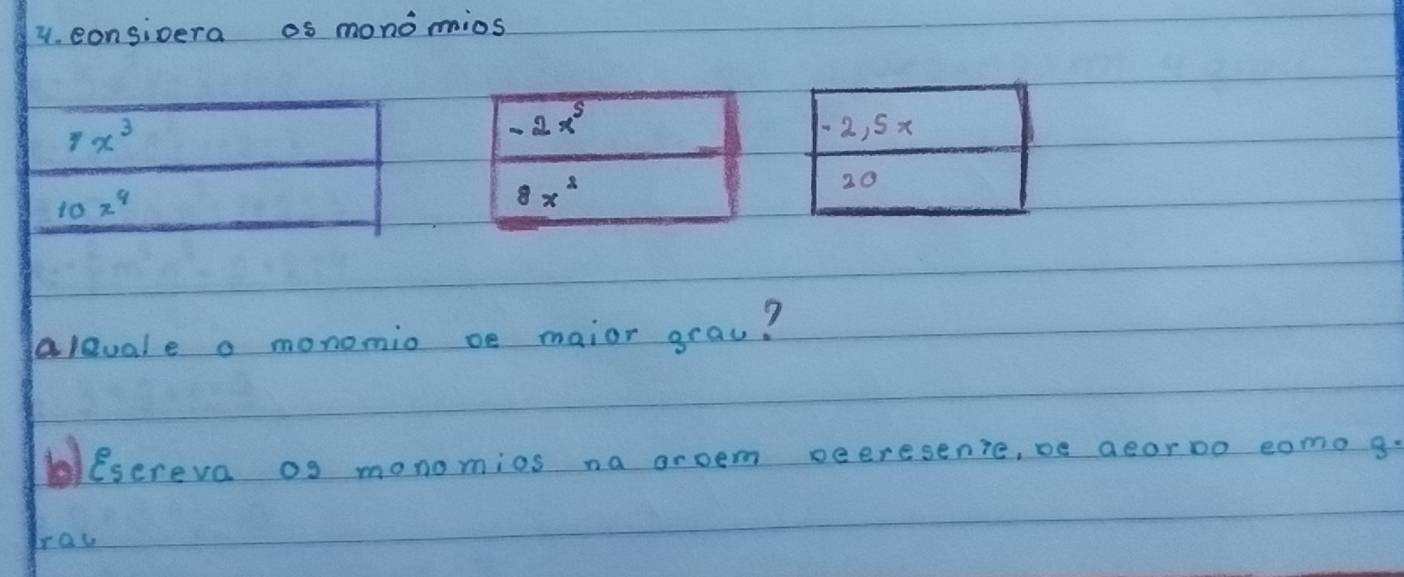 4. consivera os monômios
7x³ -2x⁵ -2,5x
10x⁴ 8x² 20
a) Qual e o monomio de maior grau?
b) Escreva os monomios na ordem decrescente, de acordo como g-
rau